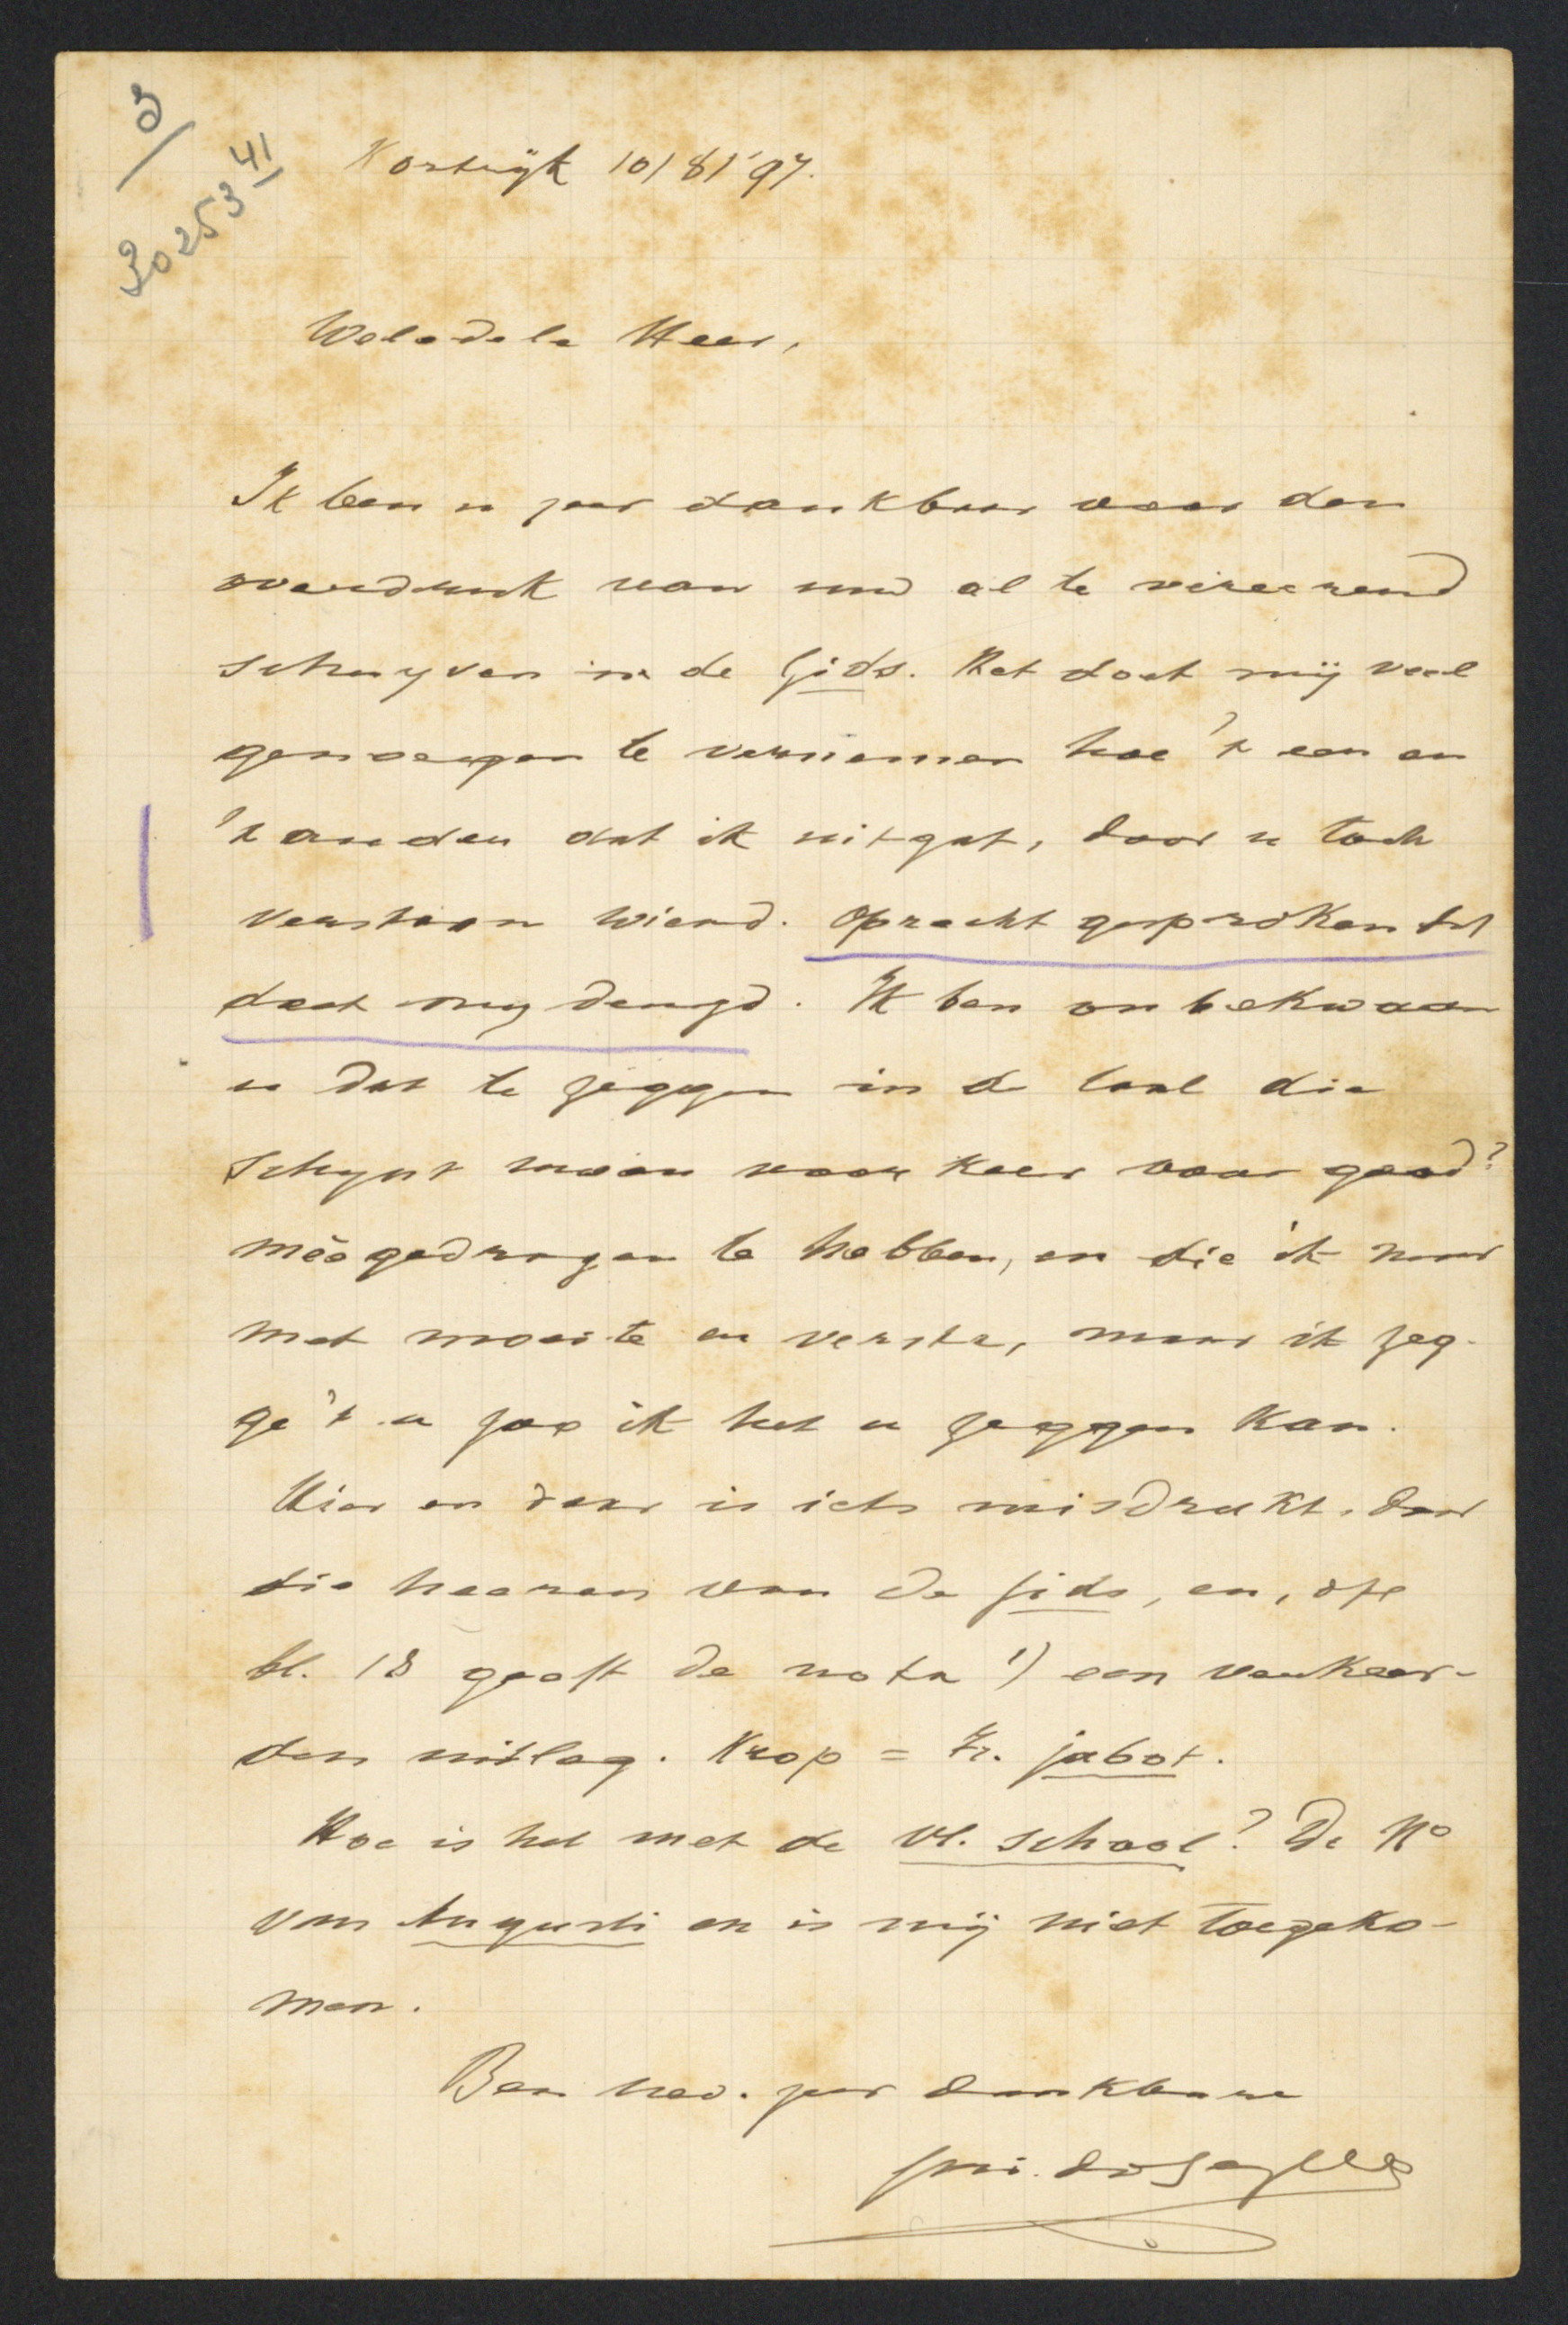 2/
20253 41
Kortrijk 10/8/'97.
Weledele Heer,
Ik ben u zeer dankbaar voor den
overdruk van uw al te vereerend
schryven in de Gids. Het doet mij veel
genoegen te vernemen hoe 't een en
't ander dat ik uitgaf, door u toch
verstaan wierd. Oprecht gesproken het
doet my deugd. Ik ben onbekwaam
u dat te zeggen in de taal die
schynt voor goed?
mêegedragen te hebben, en die ik maar
met moeite en versta, maar ik zeg-
ge 't u zoo ik het u zeggen kan.
Hier en daar is iets misdrukt, door
die heeren van de Gids, en, op
bl. 18 geeft de nota 1) een verkeer-
den uitleg. Krop = fr. jabot.
Hoe is het met de Vl. School? De No
van Augusti en is mij niet toegeko-
men.
Ben zeer dankbare
Guido Gezelle